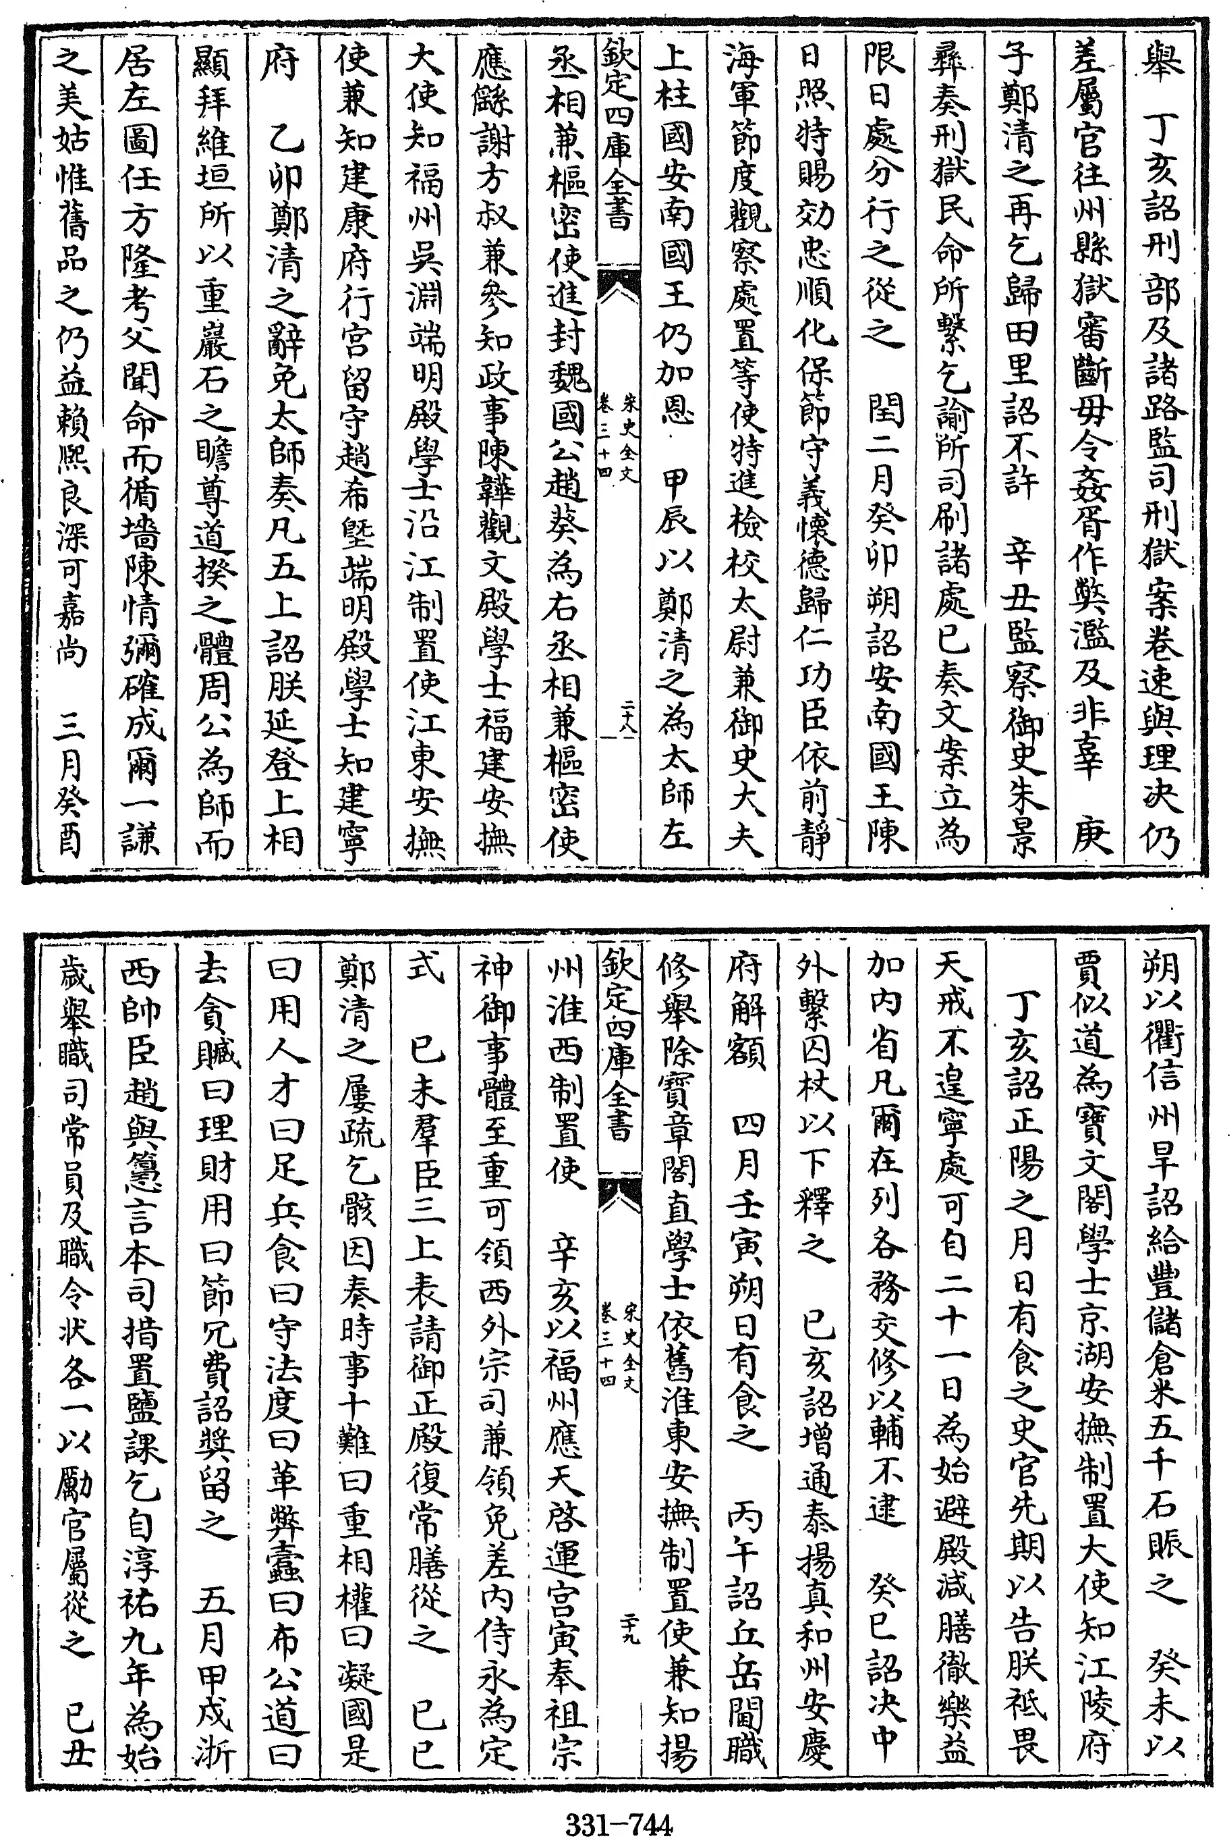 舉　丁亥詔刑部及諸路監司刑獄案卷速與理決仍
差屬官往州縣獄審斷毋令姦胥作弊濫及非辜　庚
子鄭清之再乞歸田里詔不許　辛丑監察御史朱景
彞奏刑獄民命所繫乞諭所司刷諸處已奏文案立為
限日處分行之從之　閏二月癸卯朔詔安南國王陳
日照特賜効忠順化保節守義懷德歸仁功臣依前靜
海軍節度觀察處置等使特進檢校太尉兼御史大夫
上柱國安南國王仍加恩　甲辰以鄭清之為太師左
欽定四庫全書
宋史全文
卷三十四
二十八
丞相兼樞密使進封魏國公趙葵為右丞相兼樞密使
應𦆵謝方叔兼參知政事陳韡觀文殿學士福建安撫
大使知福州吳淵端明殿學士沿江制置使江東安撫
使兼知建康府行宮留守趙希塈端明殿學士知建寧
府　乙卯鄭清之辭免太師奏凡五上詔朕延登上相
顯拜維垣所以重巖石之瞻尊道揆之體周公為師而
居左圖任方隆考父聞命而循墻陳情彌確成爾一謙
之美姑惟舊品之仍益賴熙良深可嘉尚　三月癸酉
朔以衢信州旱詔給豐儲倉米五千石賑之　癸未以
賈似道為寶文閣學士京湖安撫制置大使知江陵府
丁亥詔正陽之月日有食之史官先期以告朕祗畏
天戒不遑寧處可自二十一日為始避殿減膳徹樂益
加內省凡爾在列各務交修以輔不逮　癸巳詔決中
外繫囚杖以下釋之　已亥詔增通泰揚真和州安慶
府解額　四月壬寅朔日有食之　丙午詔丘岳閫職
修舉除寶章閣直學士依舊淮東安撫制置使兼知揚
欽定四庫全書
宋史全文
卷三十四
二十九
州淮西制置使　辛亥以福州應天啓運宮寅奉祖宗
神御事體至重可領西外宗司兼領免差內侍永為定
式　已未羣臣三上表請御正殿復常膳從之　已巳
鄭清之屢疏乞骸因奏時事十難曰重相權曰凝國是
曰用人才曰足兵食曰守法度曰革弊蠹曰布公道曰
去貪贓曰理財用曰節冗費詔獎留之　五月甲戌浙
西帥臣趙與𥲅言本司措置鹽課乞自淳祐九年為始
歲舉職司常員及職令狀各一以勵官屬從之　已丑
331-744